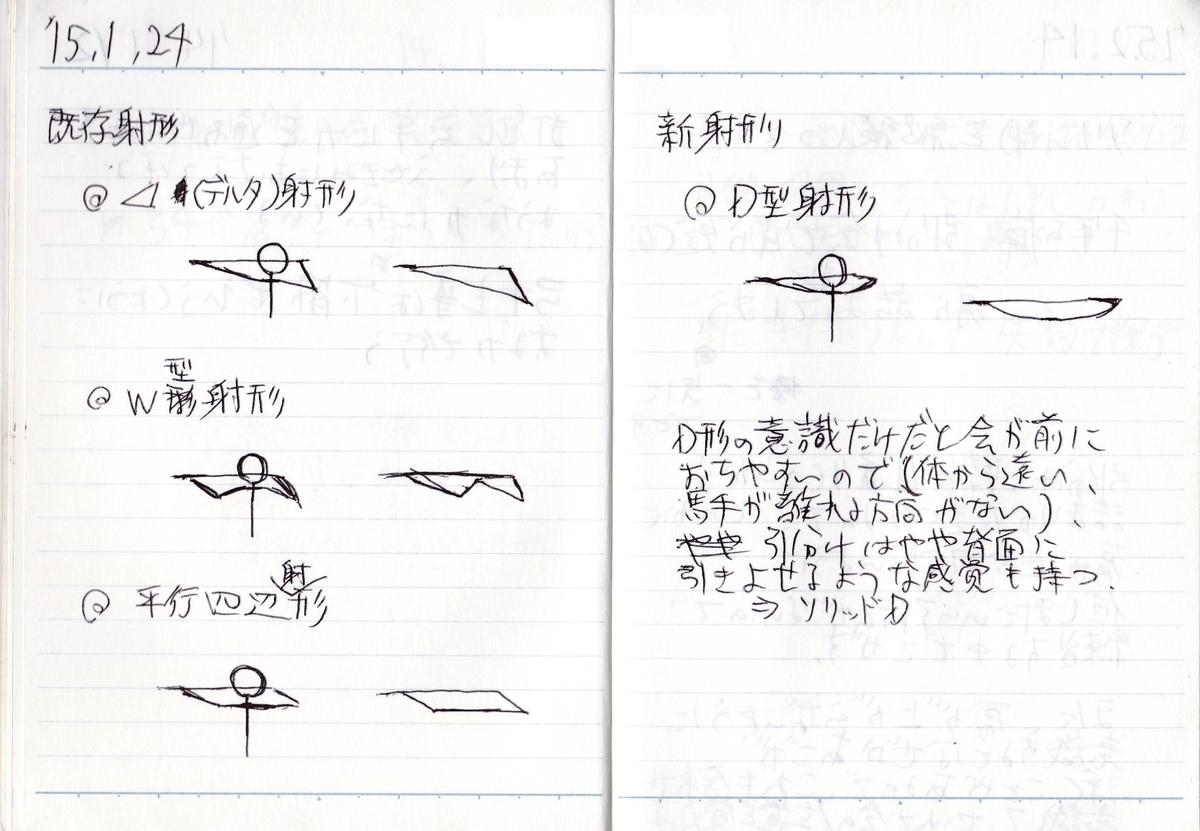 '15,1,24
既存射形
@ ⊿ (デルタ)射形
@ W型射形
@ 平行四辺射形
新射形
@ D型射形
D形の意識だけだと会が前に
おちやすいので(体から遠い、
馬手が離れる方向がない)、
引分けはやや背面に
引きよせるような感覚も持つ.
⇒ ソリッドD